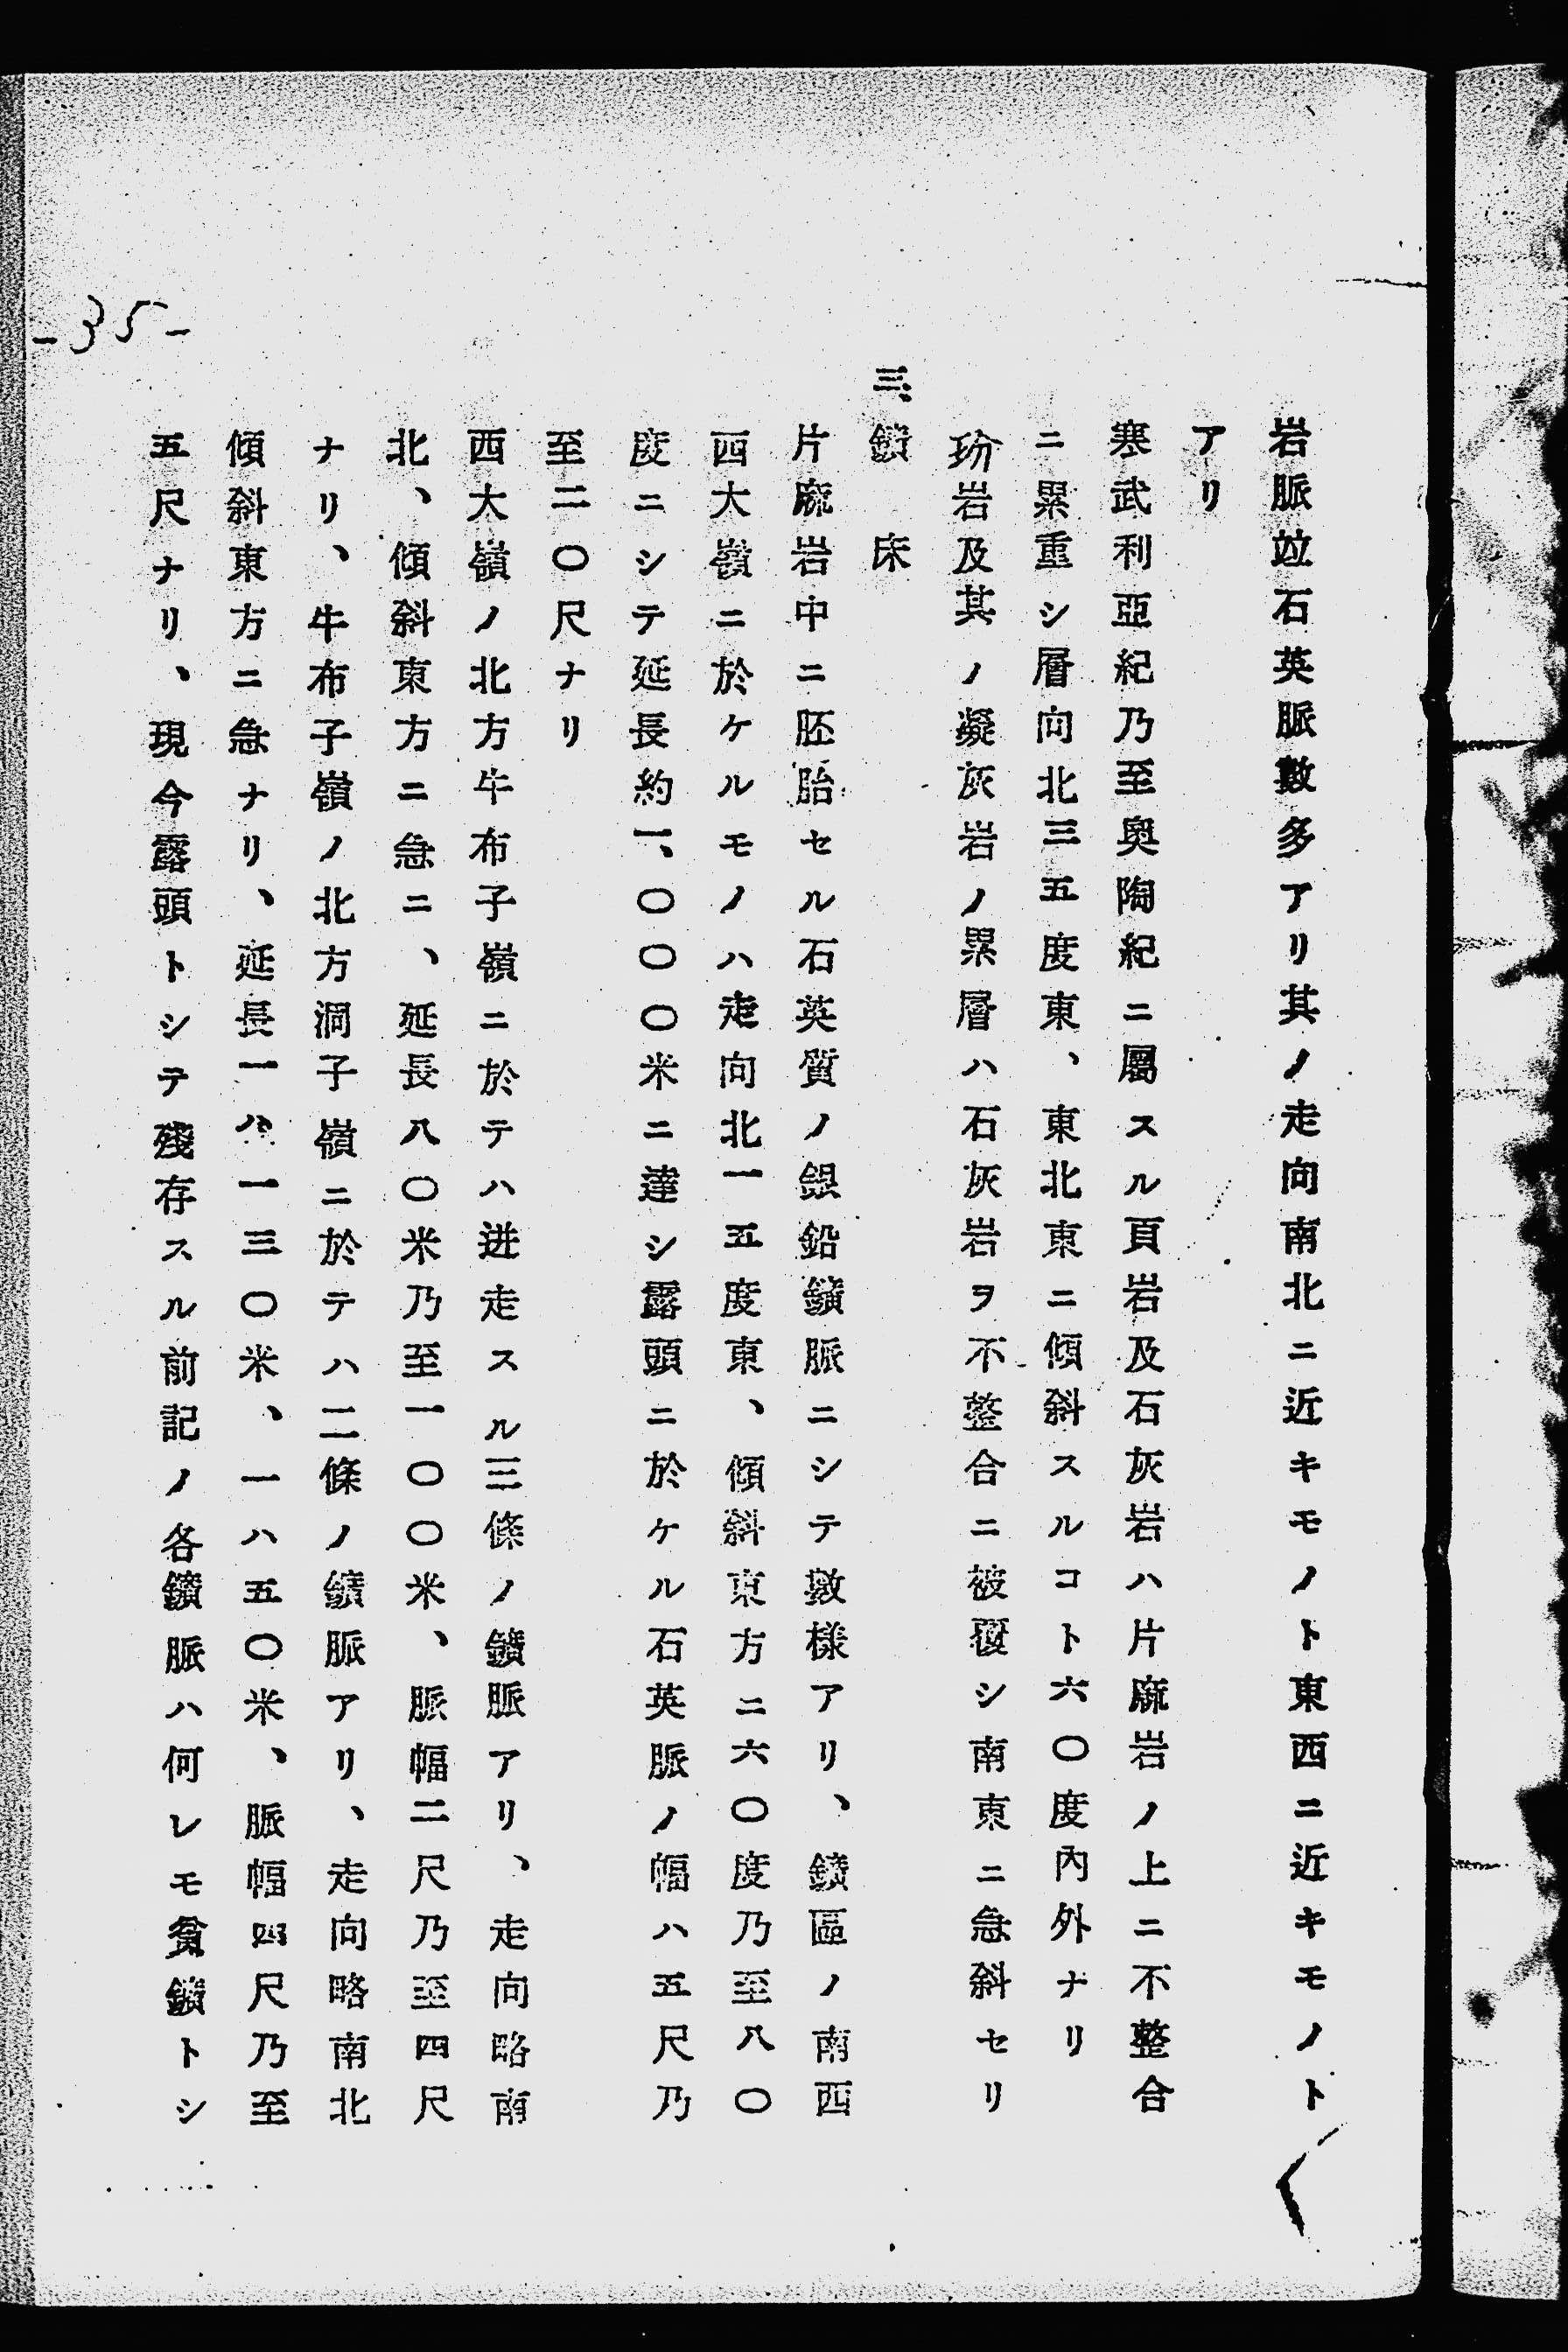 岩脈竝石英脈數多アリ其ノ走向南北ニ近キモノト東西ニ近キモノト
アリ
寒武利亞紀乃至奧陶紀ニ屬スル頁岩及石灰岩ハ片麻岩ノ上ニ不整合
ニ累重シ層向北三五度東、東北東ニ傾斜スルコト六〇度內外ナリ
玢岩及其ノ凝灰岩ノ累層ハ石灰岩ヲ不整合ニ被覆シ南東ニ急斜セリ
三、鑛床
片麻岩中ニ胚胎セル石英質ノ銀鉛鑛脈ニシテ數樣アリ、鑛區ノ南西
西大嶺ニ於ケルモノハ走向北一五度東、傾斜東方ニ六〇度乃至八〇
度ニシテ延長約一、〇〇〇米ニ達シ露頭ニ於ケル石英脈ノ幅ハ五尺乃
至二〇尺ナリ
西大嶺ノ北方牛布子嶺ニ於テハ迸走スル三條ノ鑛脈アリ、走向略南
北、傾斜東方ニ急ニ、延長八〇米乃至一〇〇米、脈幅二尺乃至四尺
ナリ、牛布子嶺ノ北方洞子嶺ニ於テハ二條ノ鑛脈アリ、走向略南北
傾斜東方ニ急ナリ、延長一ハ一三〇米、一ハ五〇米、脈幅四尺乃至
五尺ナリ、現今露頭トシテ殘存スル前記ノ各鑛脈ハ何レモ貧鑛トシ
-35-